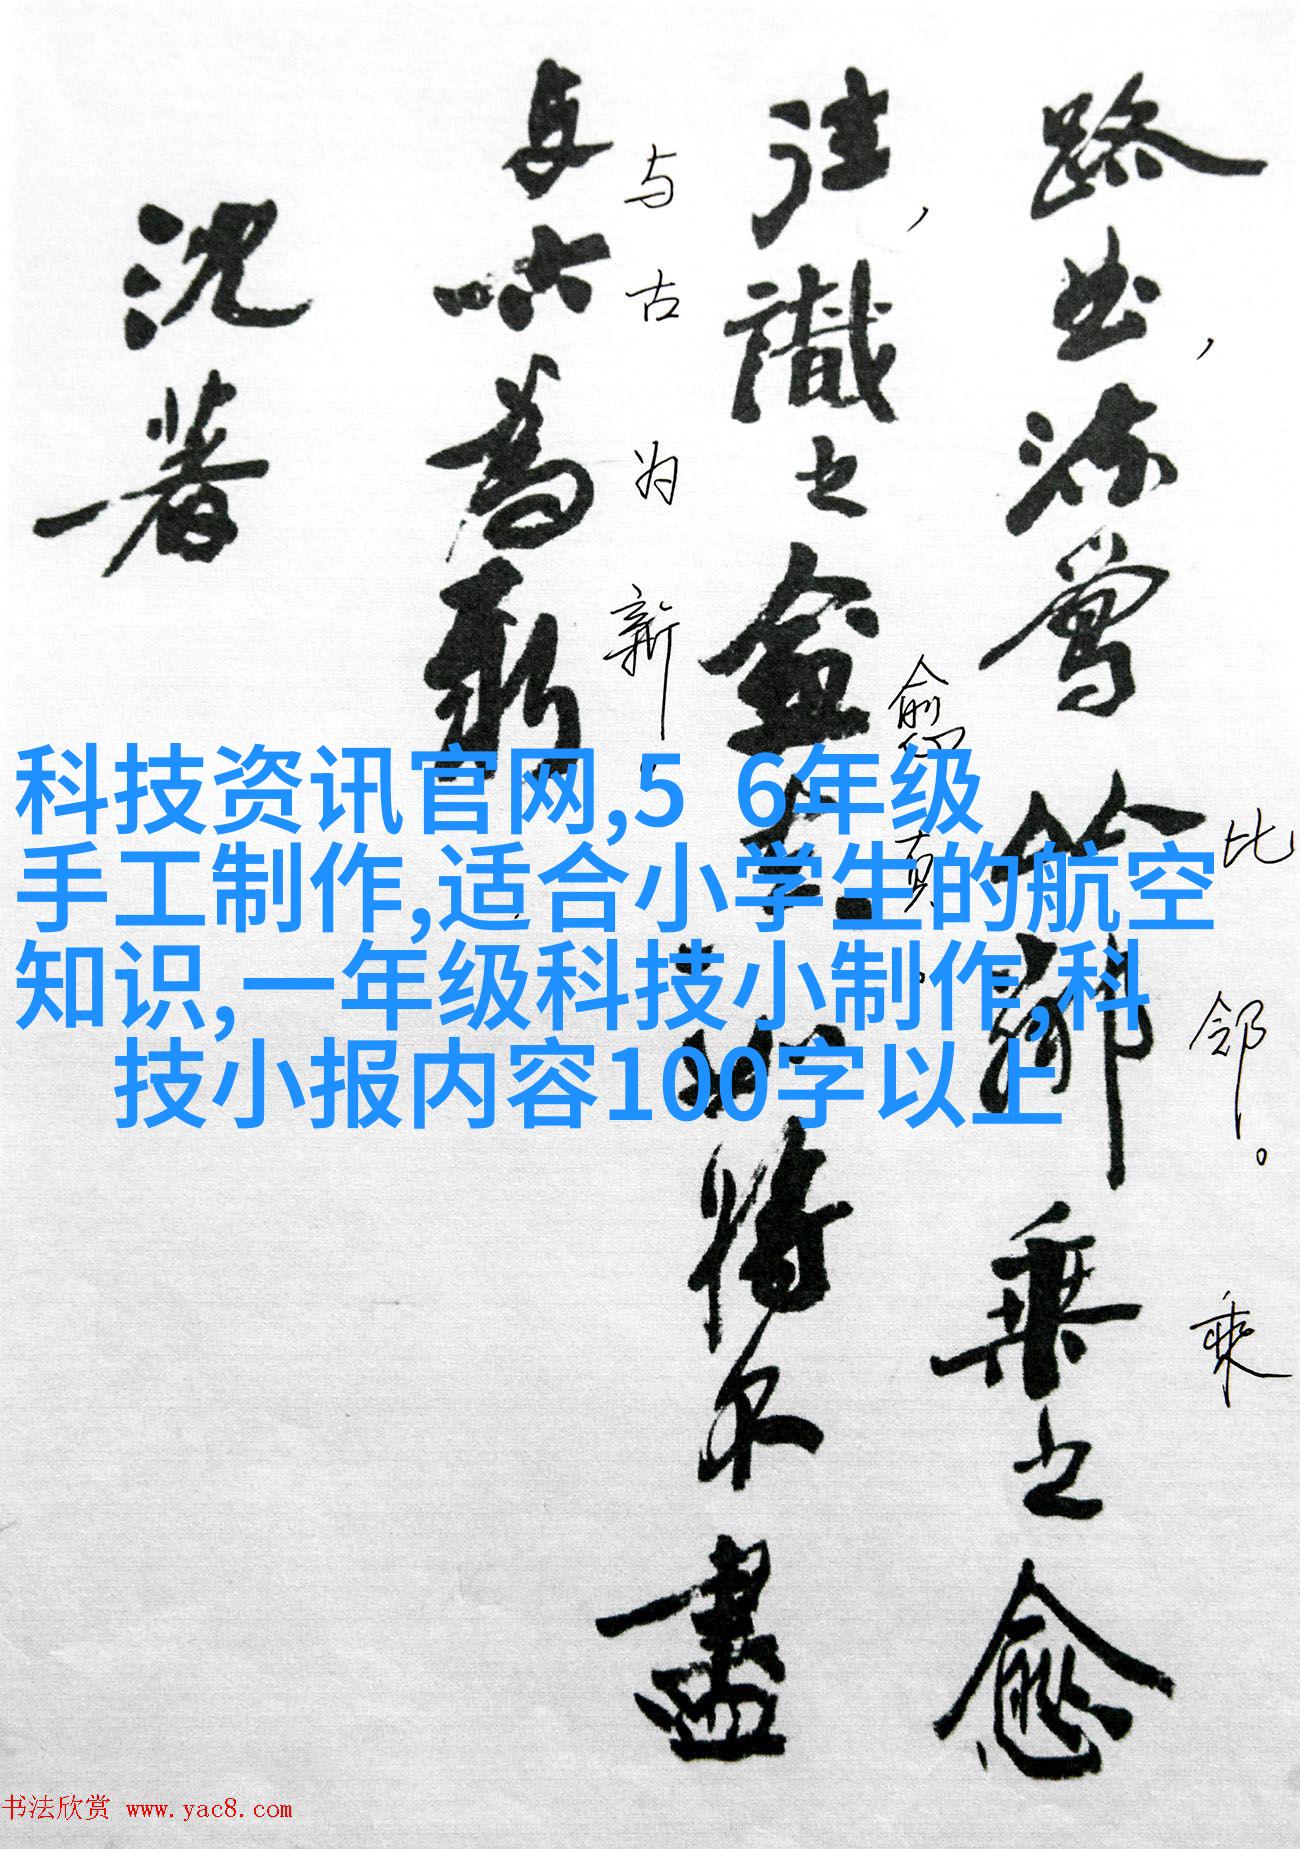 科技资讯官网,5 6年级
手工制作,适合小学生的航空
知识,一年级科技小制作,科
技小报内容100字以上
比邻。乘
路曲,流鶯比鄰乘之愈
真。
往,識之愈真如将不盡
与古为新。
与古為新
沈著
书法欣赏 www.yac8.com